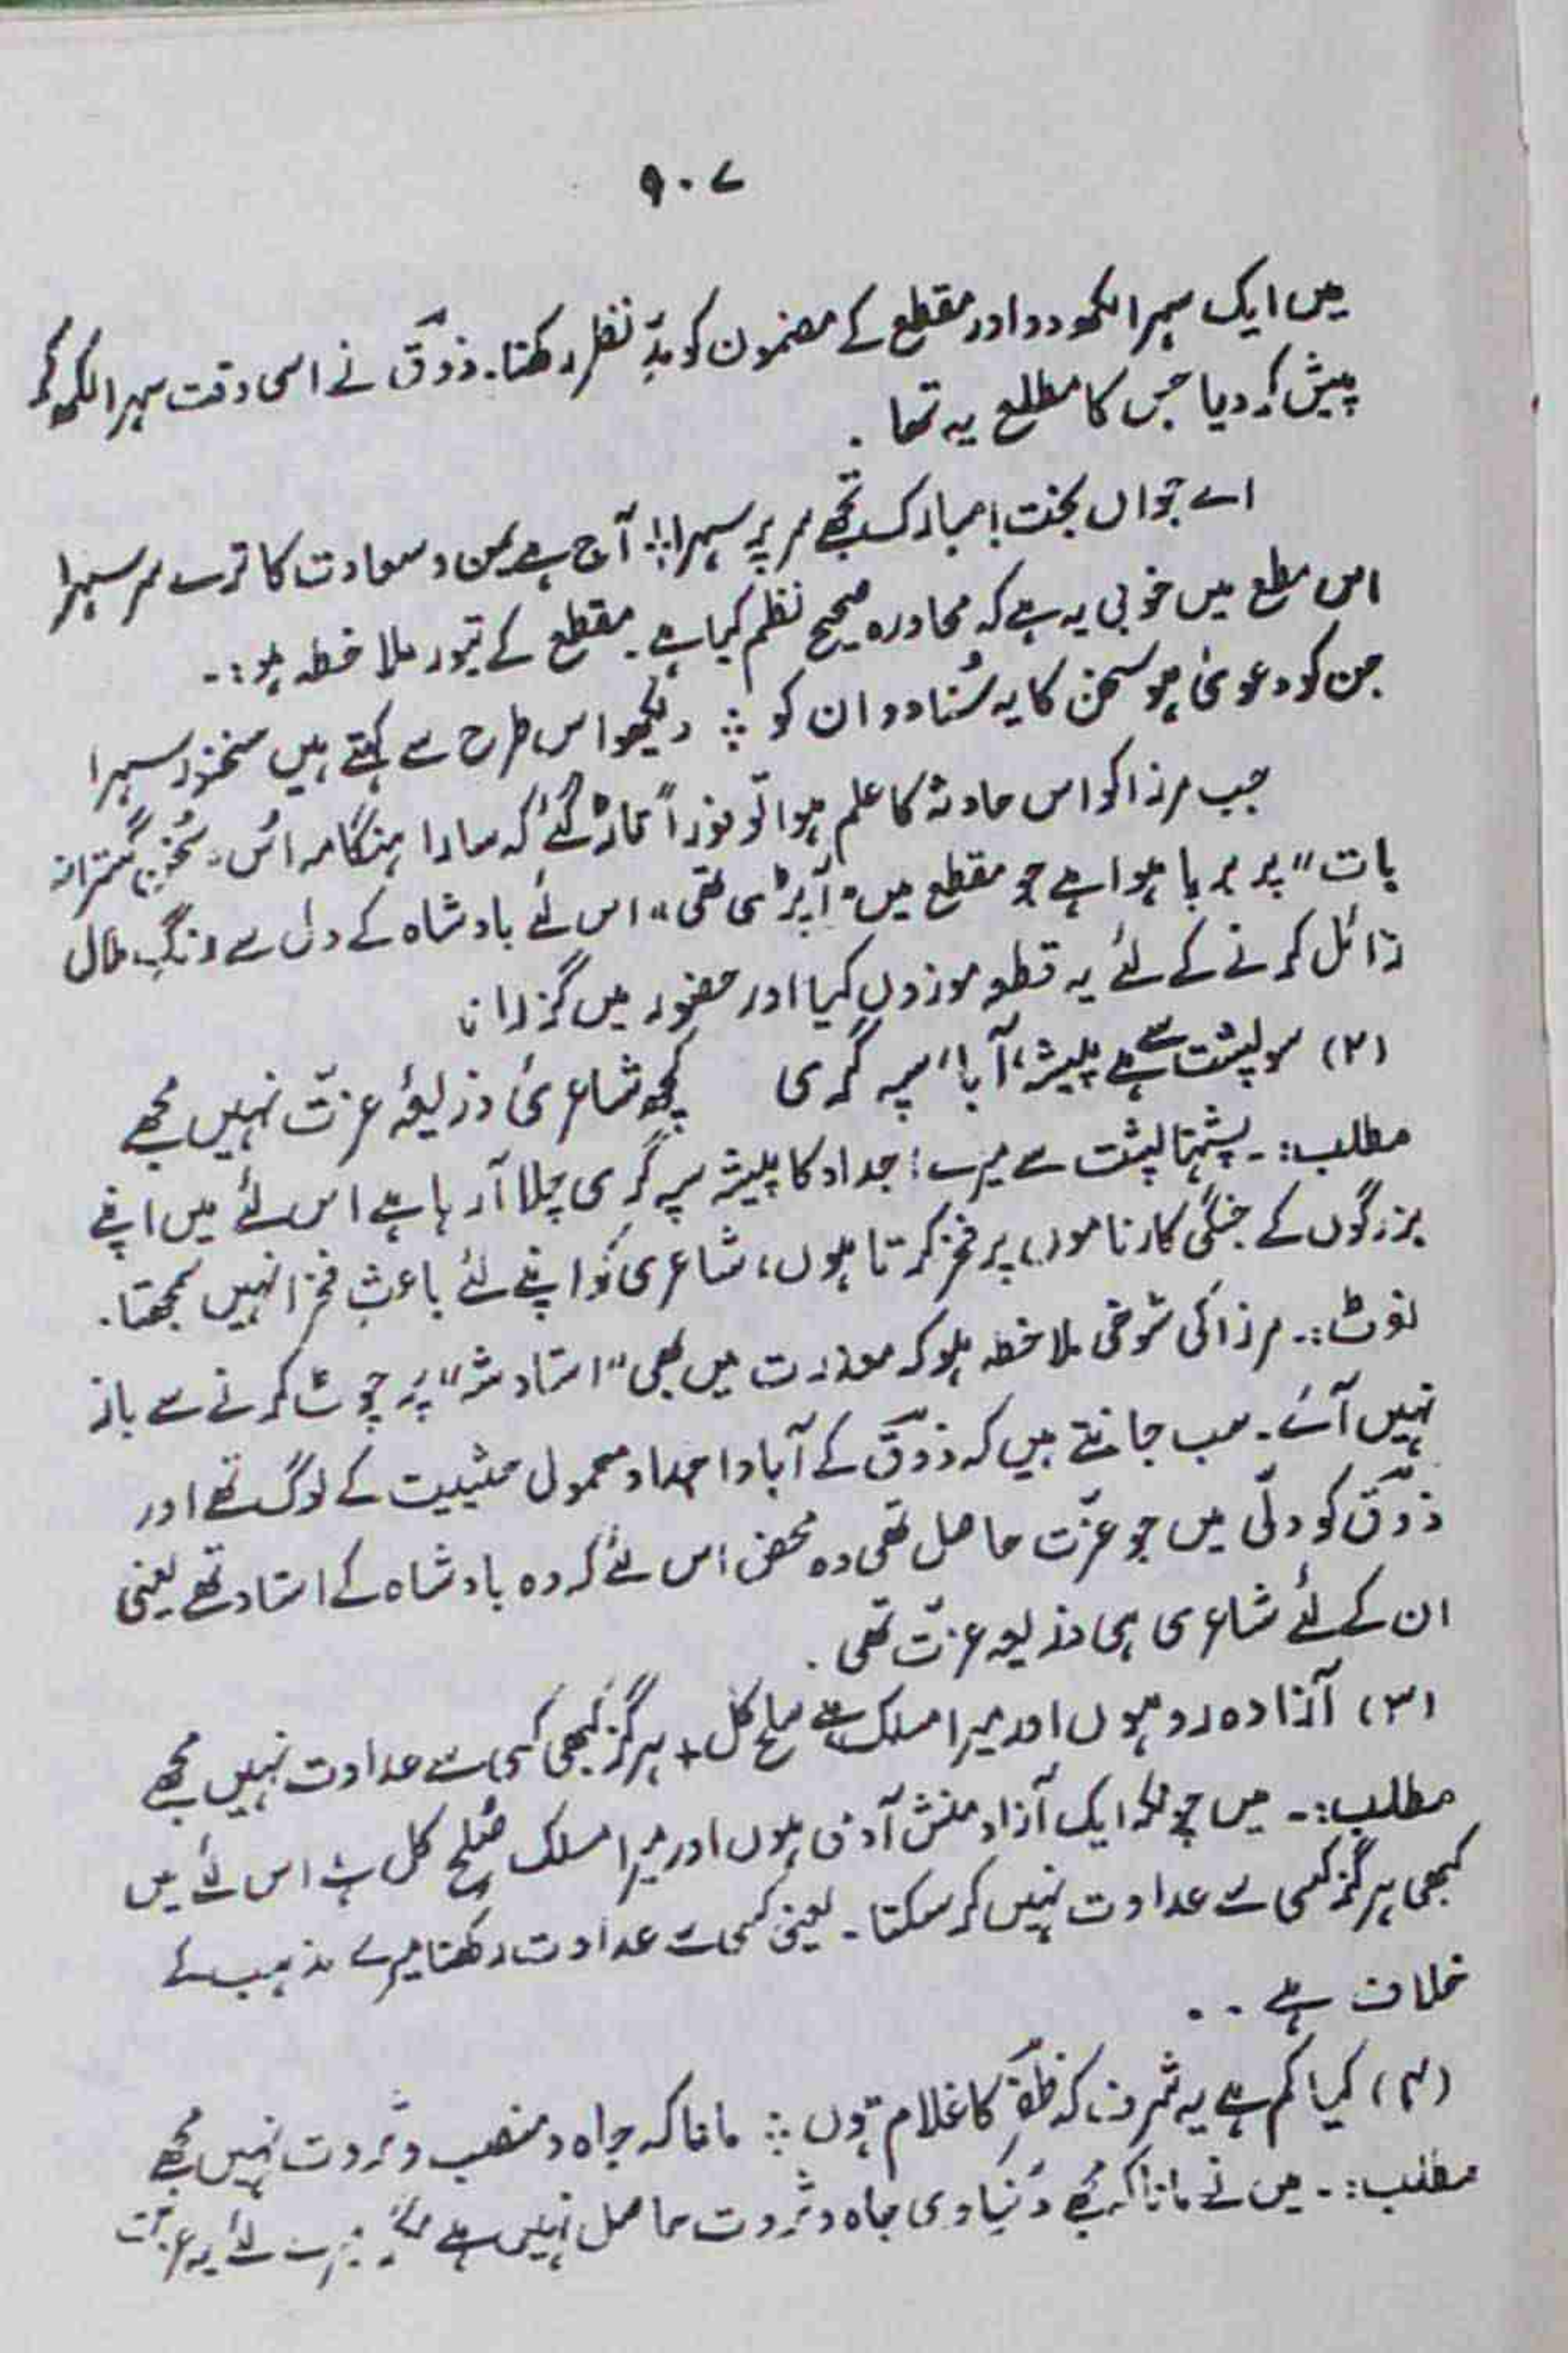 ۹۰۷
میں ایک سہرا لکھ دو اور مقطع کے مضمون کو مدِّ نظر رکھنا۔ ذوقؔ نے اسی وقت سہرا لکھ کر
پیش کر دیا جس کا مطلع یہ تھا۔
اے جواں بخت! مبارک تجھے سر پر سہرا ؞ آج ہے یمن و سعادت کا ترے سر سہرا
اس مطلع میں خوبی یہ ہے کہ محاورہ صحیح نظم کیا ہے۔ مقطع کے تیور ملاحظہ ہو:۔
جن کو دعویٰ ہو سخن کا یہ سُنا دو ان کو ؞ دیکھو اس طرح سے کہتے ہیں سخنور سہرا
جب مرزا کو اس حادثہ کا علم ہوا تو فوراً تاڑ گئے کہ سارا ہنگامہ اُس "سُخن گسترانہ
بات" پر برپا ہوا ہے جو مقطع میں "آ پڑی تھی" اس لئے بادشاہ کے دل سے رنگِ ملال
زائل کرنے کے لئے یہ قطعہ موزوں کیا اور حضور میں گزرانا
(۲) سو پشت سے ہے پیشۂ آبا، سپہ گری کچھ شاعری ذریعۂ عزّت نہیں مجھے
مطلب:۔ پشتہا پشت سے میرے اجداد کا پیشہ سپہ گری چلا آ رہا ہے اس لئے میں اپنے
بزرگوں کے جنگی کارناموں پر فخر کرتا ہوں، شاعری کو اپنے لئے باعثِ فخر نہیں سمجھتا۔
نوٹ:۔ مرزا کی شوخی ملاحظہ ہو کہ معذرت میں بھی "استادِ شہ" پر چوٹ کرنے سے باز
نہیں آئے۔ سب جانتے ہیں کہ ذوقؔ کے آبا و اجداد معمولی حیثیت کے لوگ تھے اور
ذوقؔ کو دلّی میں جو عزّت حاصل تھی وہ محض اس لئے کہ وہ بادشاہ کے استاد تھے یعنی
ان کے لئے شاعری ہی ذریعہ عزّت تھی۔
(۳) آزادہ رو ہوں اور میرا مسلک ہے صلح کل + ہرگز کبھی کسی سے عداوت نہیں مجھے
مطلب:۔ میں چونکہ ایک آزاد منش آدمی ہوں اور میرا مسلک صُلح کل ہے اس لئے میں
کبھی ہرگز کسی سے عداوت نہیں کر سکتا۔ یعنی کسی سے عداوت رکھنا میرے مذہب کے
خلاف ہے۔۔
(۴) کیا کم ہے یہ شرف کہ ظفرؔ کا غلام ہوں ؞ مانا کہ جاہ و منصب و ثروت نہیں مجھے
مطلب:۔ میں نے مانا کہ مجھے دُنیاوی جاہ و ثروت حاصل نہیں ہے میرے لئے یہ عزت